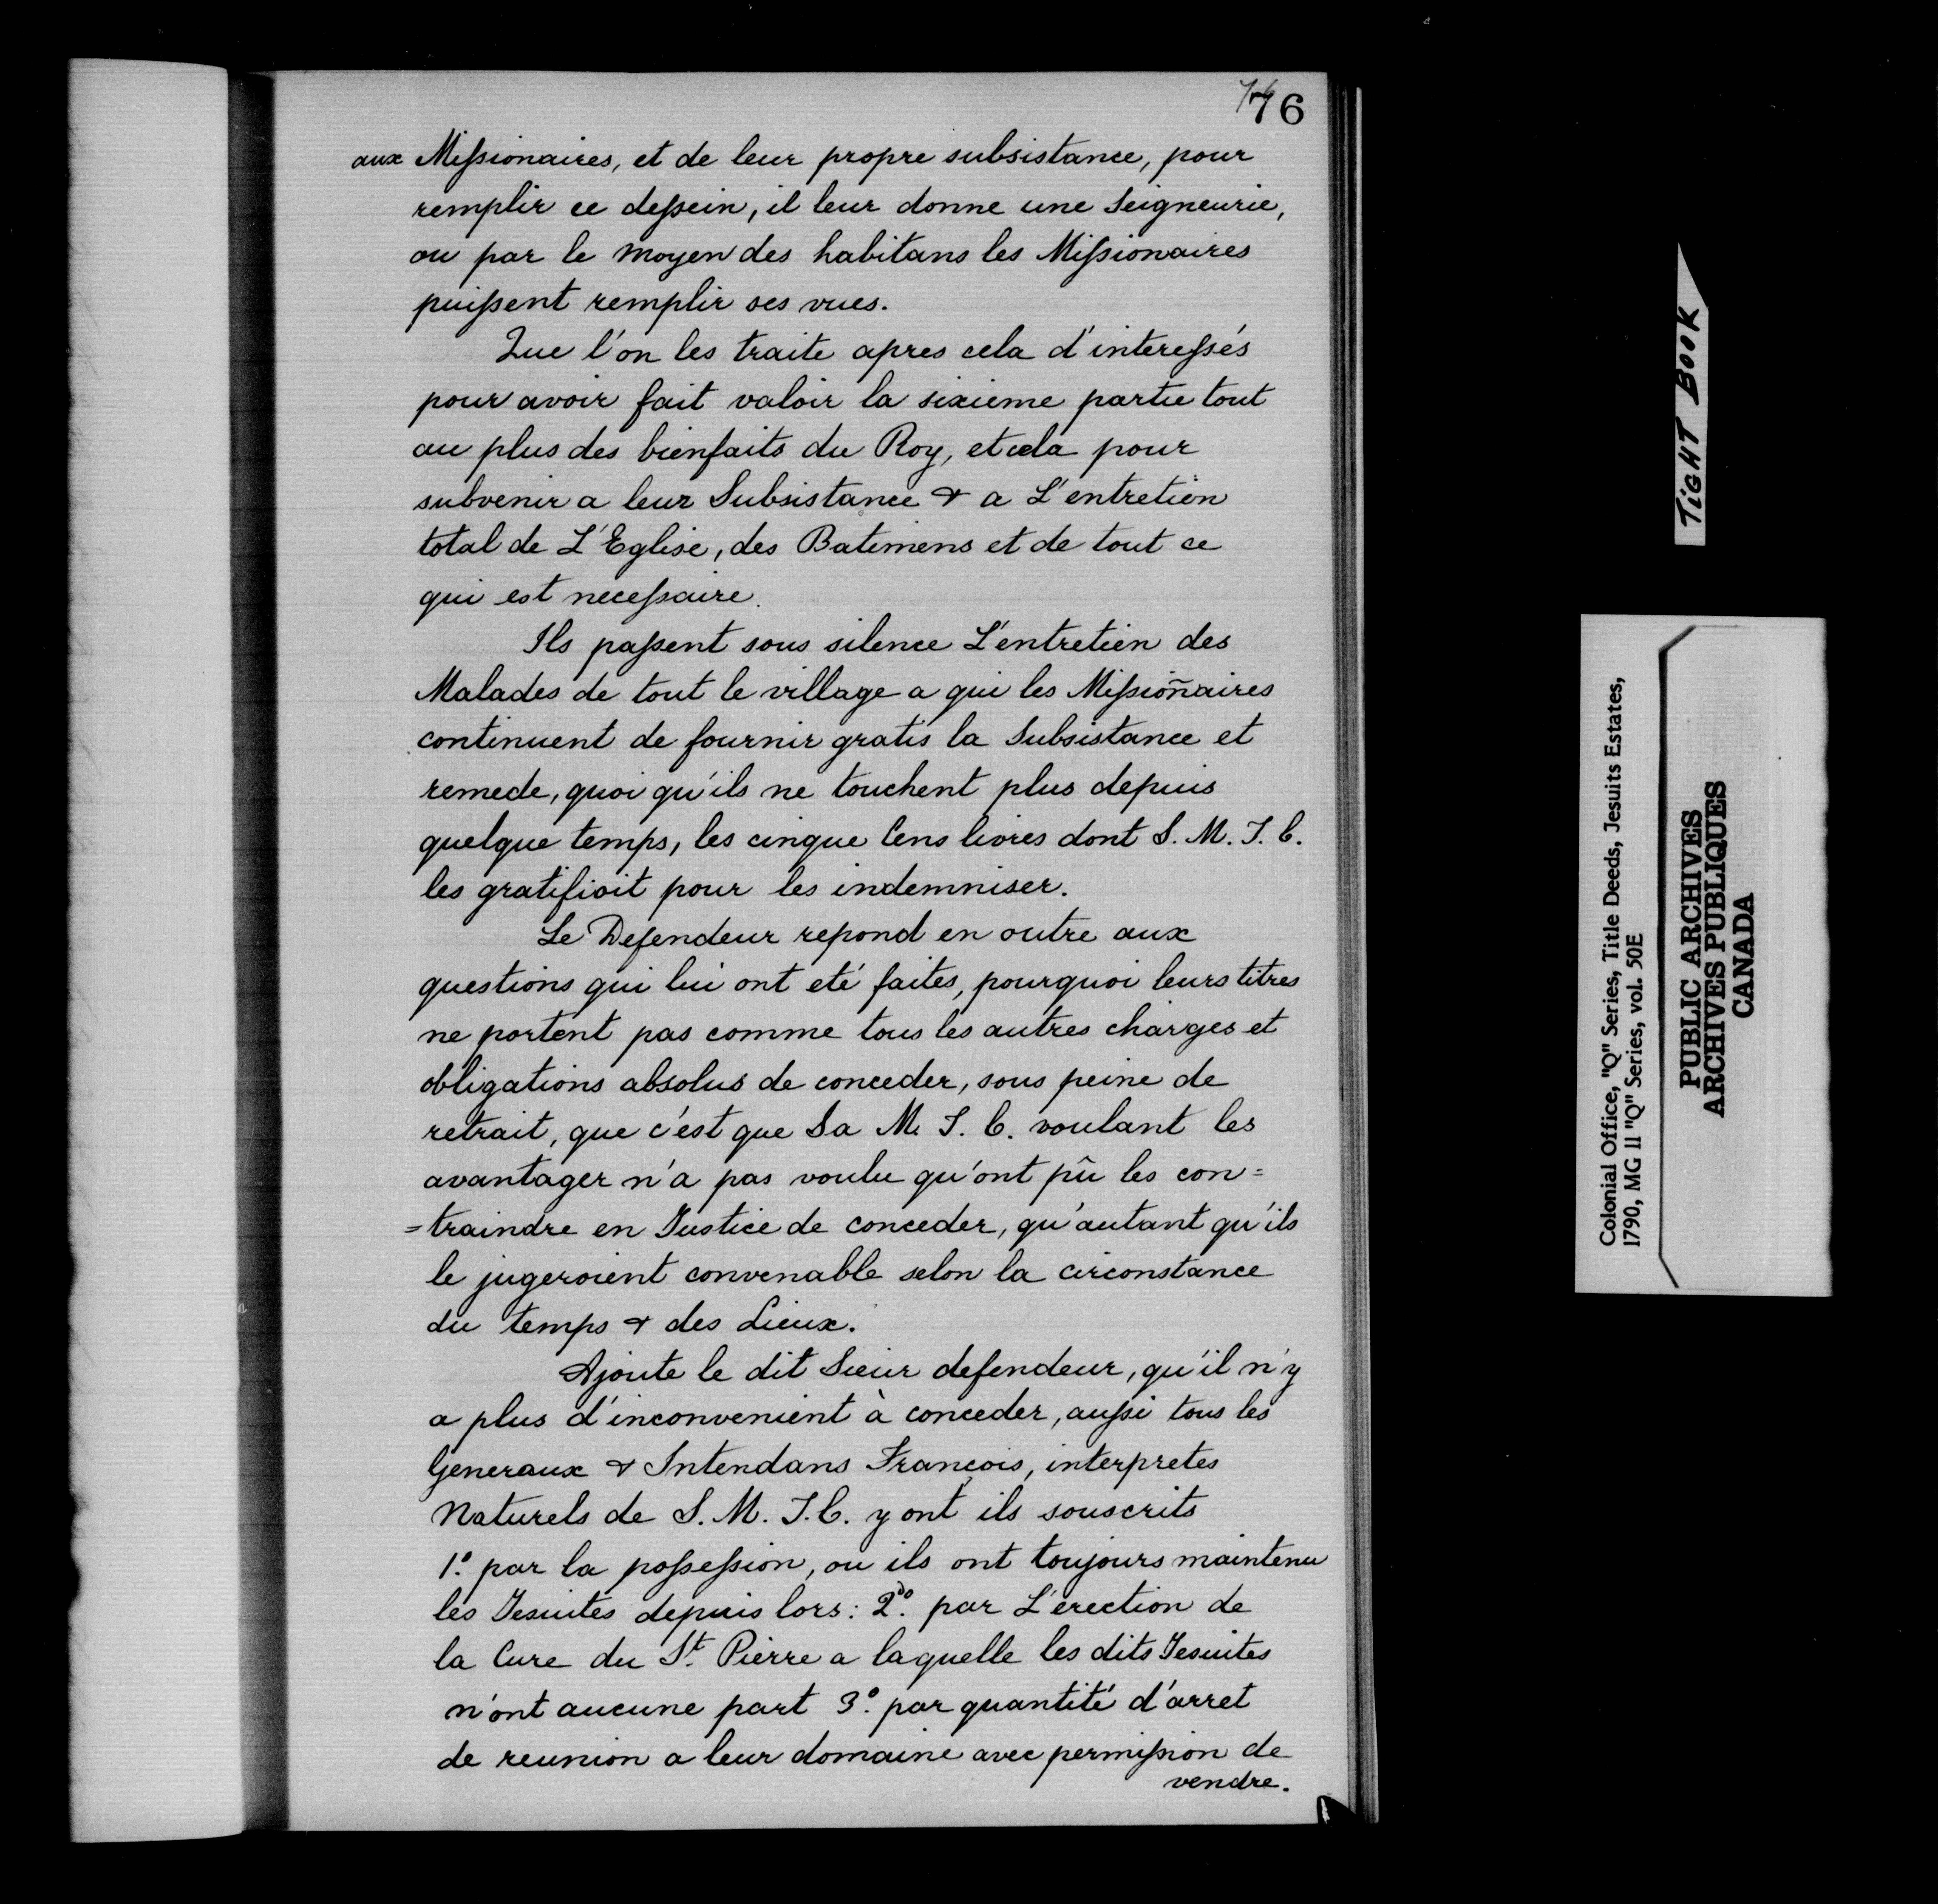 76
aux Missionaires, et de leur propre subsistance, pour
remplir ce dessein, il leur donne une Seigneurie,
ou par le moyen des habitans les Missionaires
puissent remplir ses vues.
Que l'on les traite apres cela d'interessés
pour avoir fait valoir la sixieme partie tout
au plus des bienfaits du Roy, et cela pour
subvenir a leur Subsistance & a L'entretien
total de L'Eglise, des Batimens et de tout ce
qui est necessaire.
Ils passent sous silence L'entretien des
Malades de tout le village a qui les Missioñaires
continuent de fournir gratis la Subsistance et
remede, quoi qu'ils ne touchent plus depuis
quelque temps, les cinque Cens livres dont S. M. T. C.
les gratifioit pour les indemniser.
Le Defendeur repond en outre aux
questions qui lui ont eté faites, pourquoi leurs titres
ne portent pas comme tous les autres charges et
obligations absolus de conceder, sous peine de
retrait, que c'est que Sa M. T. C. voulant les
avantager n'a pas voulu qu'ont pû les con=
=traindre en Justice de conceder, qu'autant qu'ils
le jugeroient convenable selon la circonstance
du temps & des Lieux.
Ajoute le dit Sieur defendeur, qu'il n'y
a plus d'inconvenient à conceder, aussi tous les
Generaux & Intendans François, interpretes
Naturels de S. M. T. C. y ont ils souscrits
1º. par la possession, ou ils ont toujours maintenu
les Jesuites depuis lors: 2º. par L'erection de
la Cure du St. Pierre a laquelle les dits Jesuites
n'ont aucune part 3º. par quantité d'arret
de reunion a leur domaine avec permission de
vendre.
TIGHT BOOK
Colonial Office, "Q" Series, Title Deeds, Jesuits Estates,
1790, MG 11 "Q" Series, vol. 50E
PUBLIC ARCHIVES
ARCHIVES PUBLIQUES
CANADA